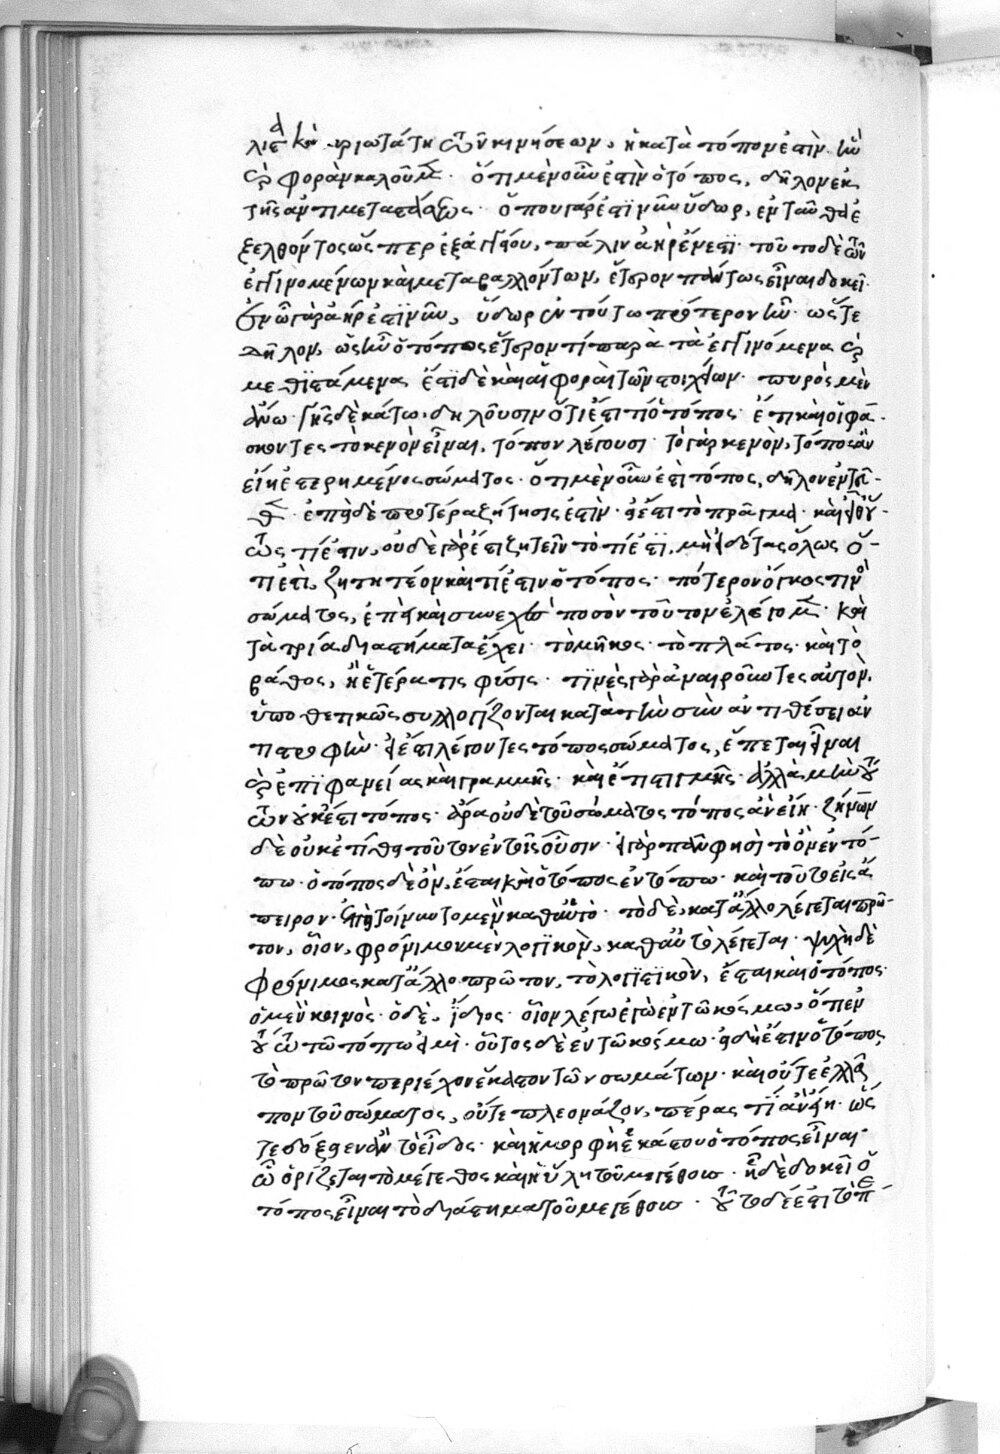 λιστα κυριωτάτη τῶν κινήσεων, ἡ κατὰ τόπον ἐστὶν ἣν
καὶ φορὰν καλοῦμεν. ὅτι μὲν οὖν ἐστὶν ὁ τόπος, δῆλον ἐκ
τῆς ἀντιμεταστάσεως. ὅπου γάρ ἐστι νῦν ὕδωρ, ἐνταῦθα ἐ
ξελθόντος ὥσπερ ἐξ ἀγγείου, πάλιν ἀὴρ ἔνεστι. τοῦτο δὲ τῶν
ἐγγινομένων καὶ μεταβαλλόντων, ἕτερον πάντων εἶναι δοκεῖ.
ἐν ᾧ γὰρ ἀήρ ἐστι νῦν, ὕδωρ ἐν τούτω πρότερον ἦν. ὥστε
δῆλον, ὡς ἦν ὁ τόπος ἕτερόν τι παρὰ τὰ ἐγγινόμενα καὶ
μεθιστάμενα. ἔτι δὲ καὶ αἱ φοραὶ τῶν στοιχείων. πυρὸς μὲν
ἄνω. γῆς δὲ κάτω. δηλοῦσιν ὅτι ἐστί τι ὁ τόπος. ἔτι καὶ οἱ φά-
σκοντες τὸ κενὸν εἶναι, τόπον λέγουσι. τὸ γὰρ κενὸν, τόπος ἂν
εἴη ἐστερημένος σώματος. ὅτι μὲν οὖν ἐστὶ τόπος, δῆλον ἐντεῦ-
θεν. ἐπεὶ δὲ προτέρα ζήτησίς ἐστὶν. εἰ ἔστι τὸ πρᾶγμα. καὶ εἶθ' οὕ-
τως τί ἐστιν, οὐδὲ γὰρ ἔστι ζητεῖν τὸ τί ἐστι, μὴ εἰδότας ὅλως ὅ-
τι ἐστὶ, ζητητέον καὶ τί ἐστιν ὁ τόπος. πότερον ὄγκος τις
σώματος, ἐπεὶ καὶ συνεχὲς ποσὸν τοῦτον ἐλέγομεν. καὶ
τὰ τρία διαστήματα ἔχει. τὸ μῆκος. τὸ πλάτος. καὶ τὸ
βάθος, ἢ ἑτέρα τις φύσις. τινὲς γὰρ ἀναιροῦντες αὐτὸν,
ὑποθετικῶς συλλογίζονται κατὰ τὴν σὺν ἀντιθέσει ἀν
τιστροφὴν. εἰ ἔστι λέγοντες τόπος σώματος, ἕπεται εἶναι
καὶ ἐπιφανείας καὶ γραμμῆς. καὶ ἔτι στιγμῆς. ἀλλὰ μὴν τού
των οὐκ ἔστι τόπος. ἄρα οὐδὲ τοῦ σώματος τόπος ἂν εἴη. ζήνων
δὲ οὐκέτι θῆ τοῦτον ἐν τοῖς οὖσιν. εἰ γὰρ πᾶν φησὶ τὸ ὂν ἐν τό-
πω. ὁ τόπος δὲ ὂν, ἔσται καὶ ὁ τόπος ἐν τόπω. καὶ τοῦτο εἰς ἄ
πειρον. ἐπεὶ τοίνυν τὸ μὲν καθ' αὑτὸ. τὸ δὲ, κατ' ἄλλο λέγεται πρῶ-
τον, οἷον, φρόνιμον μὲν λογικὸν, καθ' αὑτὸ λέγεται. ψυχὴ δὲ
φρόνιμος κατ' ἄλλο πρῶτον, τὸ λογιστικὸν, ἔσται καὶ ὁ τόπος.
ὁ μὲν κοινὸς. ὁ δὲ, ἴδιος. οἷον λέγω ἐγὼ ἐν τῶ κόσμω, ὅτι ἐν
τούτω τῶ τόπω εἰμὶ. οὗτος δὲ ἐν τῶ κόσμω. εἰ δή ἐστιν ὁ τόπος
τὸ πρῶτον περιέχον ἕκαστον τῶν σωμάτων. καὶ οὔτε ἐλλεῖ
πον τοῦ σώματος, οὔτε πλεονάζον, πέρας τι ἂν εἴη. ὥς
τε δόξειεν ἂν τὸ εἶδος. καὶ ἡ μορφὴ ἑκάστου ὁ τόπος εἶναι.
ᾧ ὁρίζεται τὸ μέγεθος καὶ ἡ ὕλη τοῦ μεγέθους. ᾗ δὲ δοκεῖ ὁ
τόπος εἶναι τὸ διάστημα τοῦ μεγέθους. τοῦτο δέ ἐστι τὸ πε